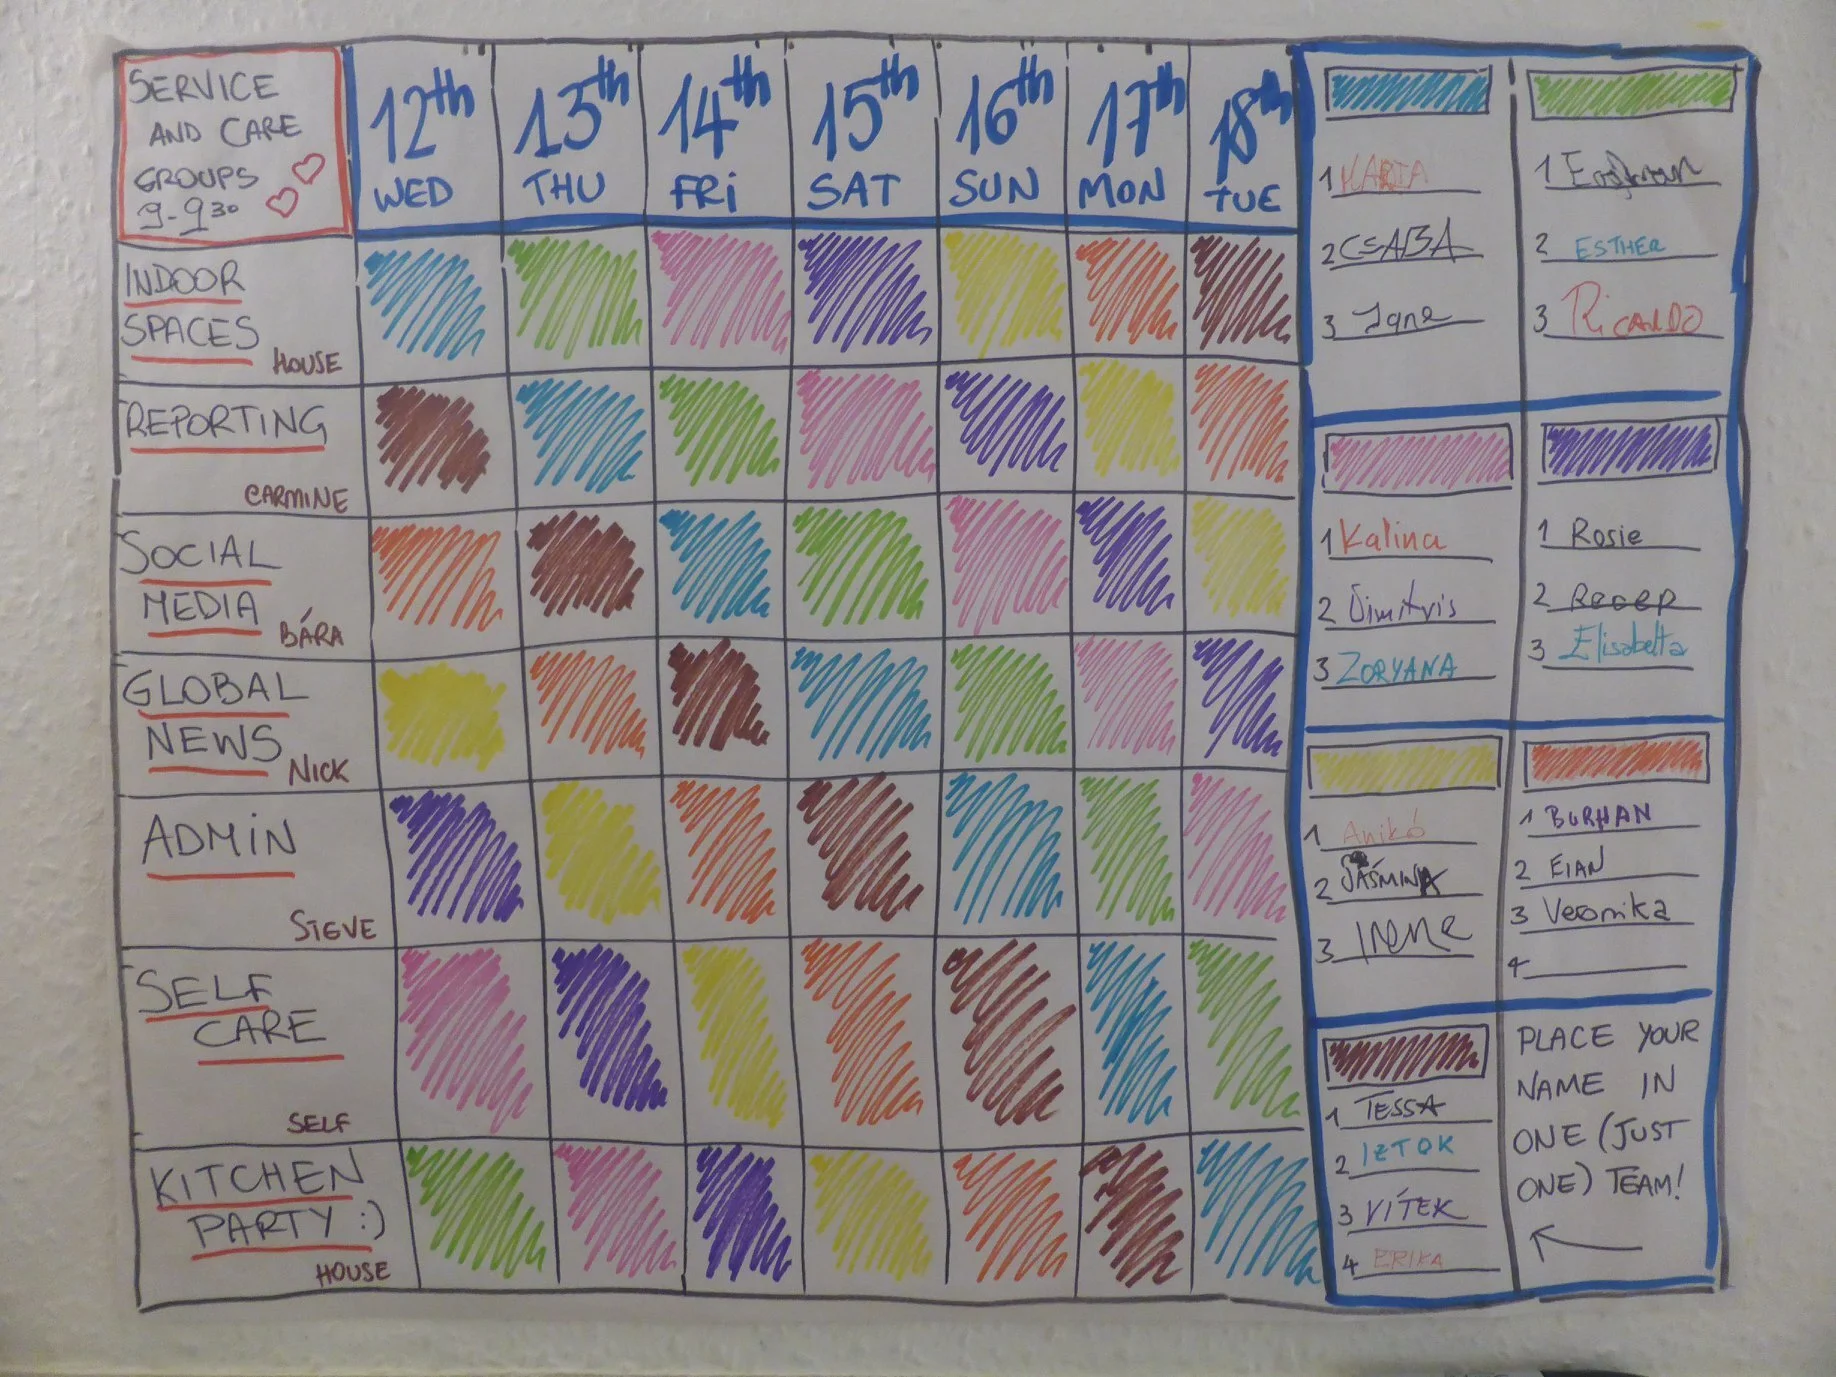 SERVICE
AND CARE
GROUPS
9-9³⁰
12th
WED
13th
THU
14th
FRi
15th
SAT
16th
SUN
17th
MON
18th
TUE
INDOOR
SPACES
HOUSE
REPORTING
CARMINE
SOCIAL
MEDIA
BÁRA
GLOBAL
NEWS
NICK
ADMiN
SELF
CARE
SELF
KITCHEN
PARTY :)
HOUSE
1 MARIA
2 CSABA
3 Jane
1
2 ESTHER
3 RiCARDO
1 Kalina
2 Dimitris
3 ZORYANA
1 Rosie
2 Recep
3 Elisabetta
1 Anikó
2 JAŚMINA
3 IRENE
1 BURHAN
2 EIAN
3 Veronika
4
1 TESSA
2 IZTOK
3 VÍTEK
4 ERIKA
PLACE YOUR
NAME IN
ONE (JUST
ONE) TEAM!